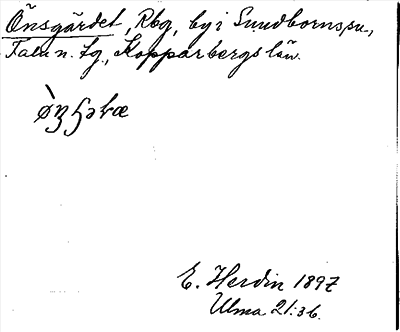 Önsgärdet, Rbg, by i Sundborns sn.,
Falu n. tg., Kopparbergs län.
E. Herdin 1897
Ulma 21:36.